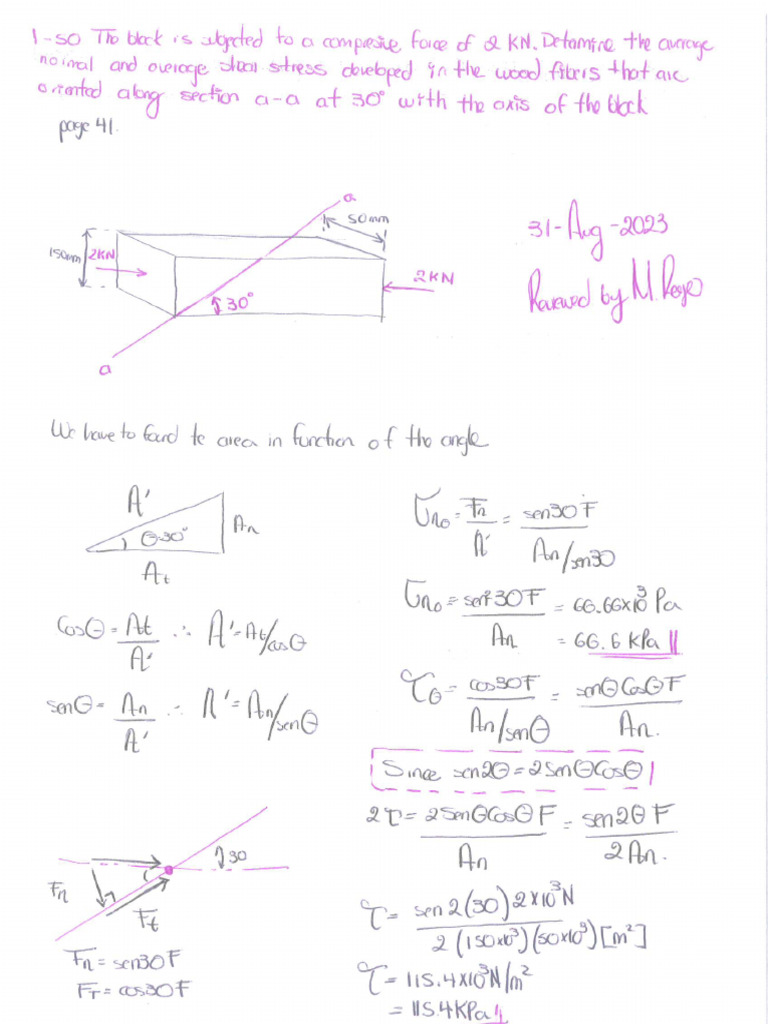 1-50 The block is subjected to a compresive force of 2 KN. Detamine the average
normal and average shear stress developed in the wood fibers that are
oriented along section a-a at 30° with the axis of the block
page 41.
a
50mm
150mm
2KN
30°
2KN
a
31-Aug-2023
Reviewed by M.
We have to found te area in function of the angle
A'
An
θ=30°
At
Cosθ = At/A' ∴ A' = At/cosθ
senθ = An/A' ∴ A' = An/senθ
30
Fn
Ft
Fn = sen30F
FT = cos30F
σno = Fn/A' = sen30F / An/sen30
σno = sen²30F / An = 66.66x10³ Pa
= 66.6 KPa
τθ = cos30F / An/senθ = senθCosθF / An.
Since sen2θ = 2senθCosθ
2τ = 2senθCosθF / An = sen2θ F / 2An.
τ = sen2(30)2x10³N / 2(150x10³)(50x10³)[m²]
τ = 115.4x10³N/m²
= 115.4KPa